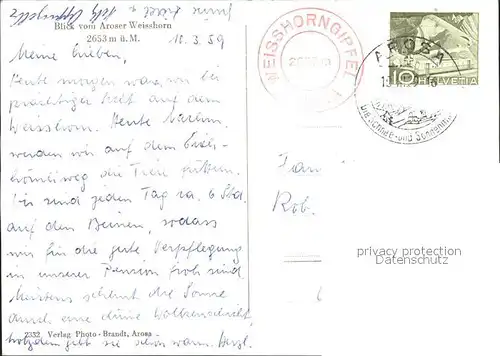 Blick vom Aroser Weisshorn
2653 m ü. M.
10.3.59
Meine Lieben,
Heute morgen waren wir bei
prächtiger Zeit auf dem
Weisshorn. Heute
werden wir auf dem Eich-
hörnliweg die Tiere füttern.
Wir sind jeden Tag ca. 6 Std.
auf den Beinen, sodass
wir für die gute Verpflegung
in unserer Pension froh sind.
Meistens scheint die Sonne
durch eine dünne Wolkenschicht,
trotzdem gibt sie schon warm. Herzl.
2332 Verlag Photo-Brandt, Arosa
WEISSHORNGIPFEL
AROSA
10 HELVETIA
Fam
Rob.
privacy protection
Datenschutz